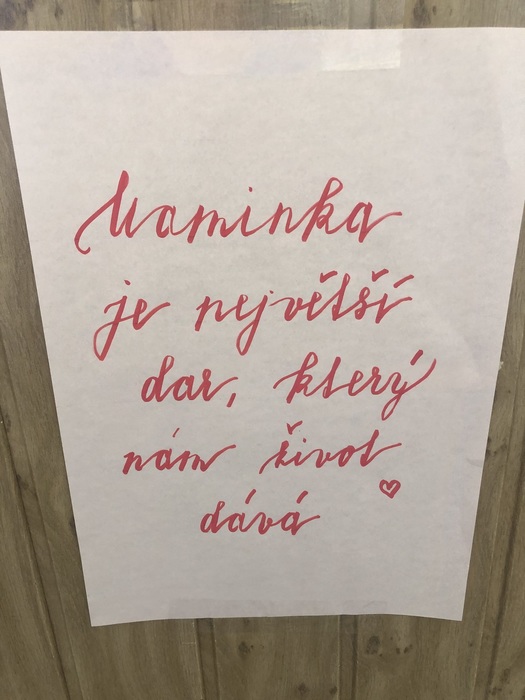 Maminka
je největší
dar, který
nám život
dává